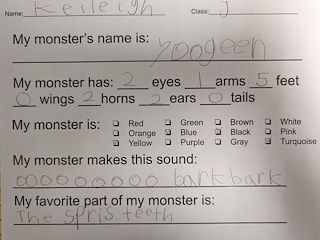 Name: Keileigh Class: J
My monster's name is:
yoogeen
My monster has: 2 eyes 1 arms 5 feet
0 wings 2 horns 2 ears 0 tails
My monster is: Red Green Brown White
Orange Blue Black Pink
Yellow Purple Gray Turquoise
My monster makes this sound:
oooooooooo bark bark
My favorite part of my monster is:
The spris teeth